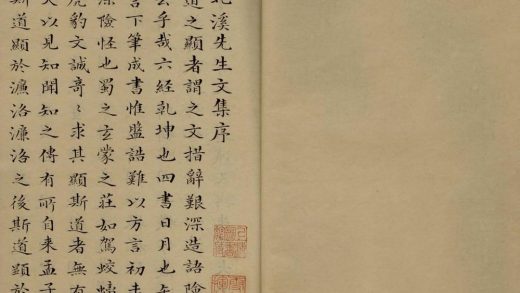 北溪先生文集序
道之顯者謂之文措辭艱深造語險
乎哉六經乾坤也四書日月也
言下筆成書惟盤誥難以方言初
深險怪也蜀之玄蒙之莊如駕蛟
虎豹文誠奇々求其顯斯道者無有
以見知聞知之傳有所自来孟子
斯道顯於濂洛濂洛之後斯道顯於